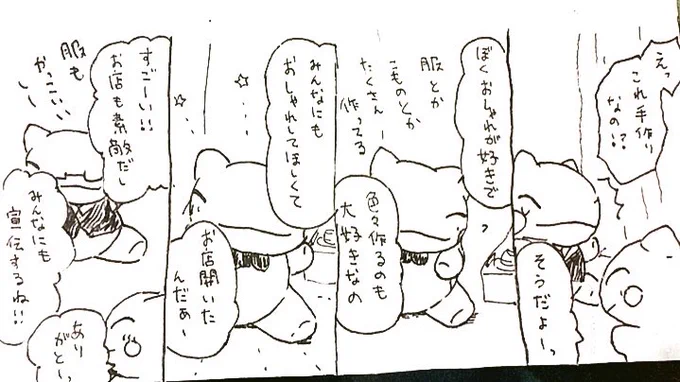 えっ
これ手作り
なの!?
そうだよーっ
ぼくおしゃれが好きで
服とか
こものとか
たくさん
作ってるー
色々作るのも
大好きなの
みんなにも
おしゃれしてほしくて
お店開いた
んだぁー
すごーい!!
お店も素敵だし
服も
かっこいいー
みんなにも
宣伝するね!!
あり
がとーっ